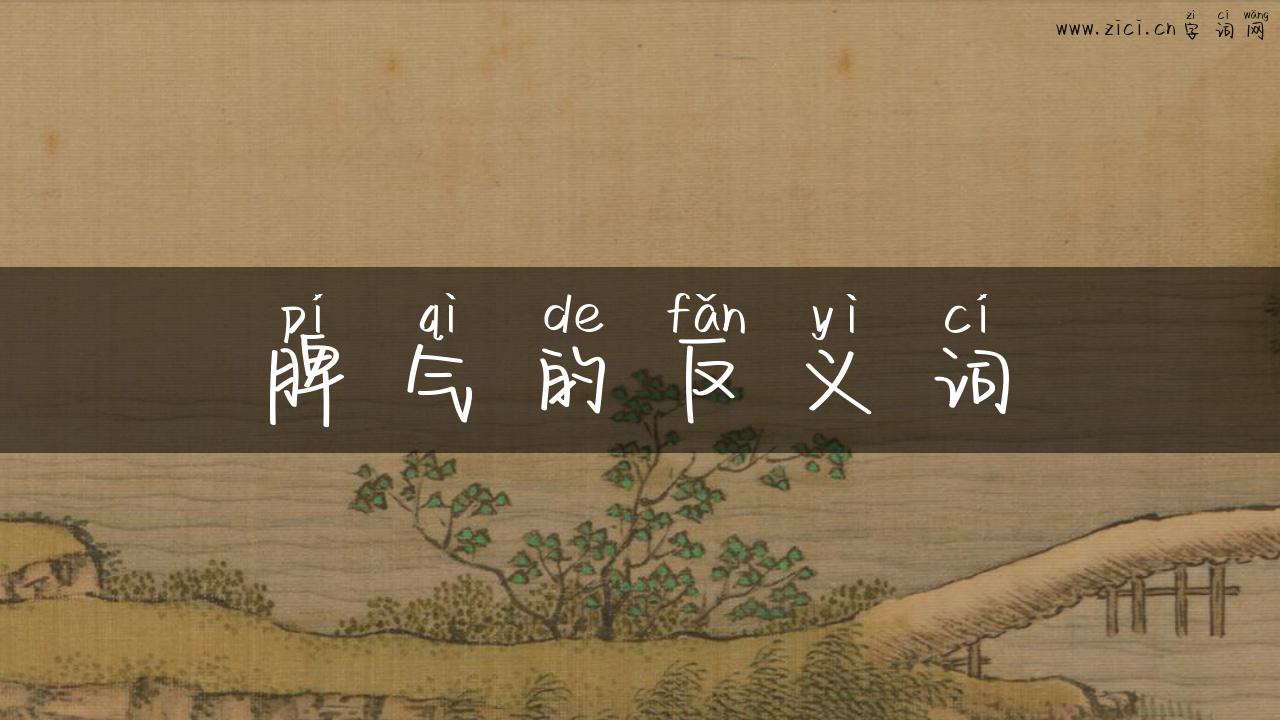 zì cí wǎng
www.zici.cn 字词网
pí qì de fǎn yì cí
脾气的反义词